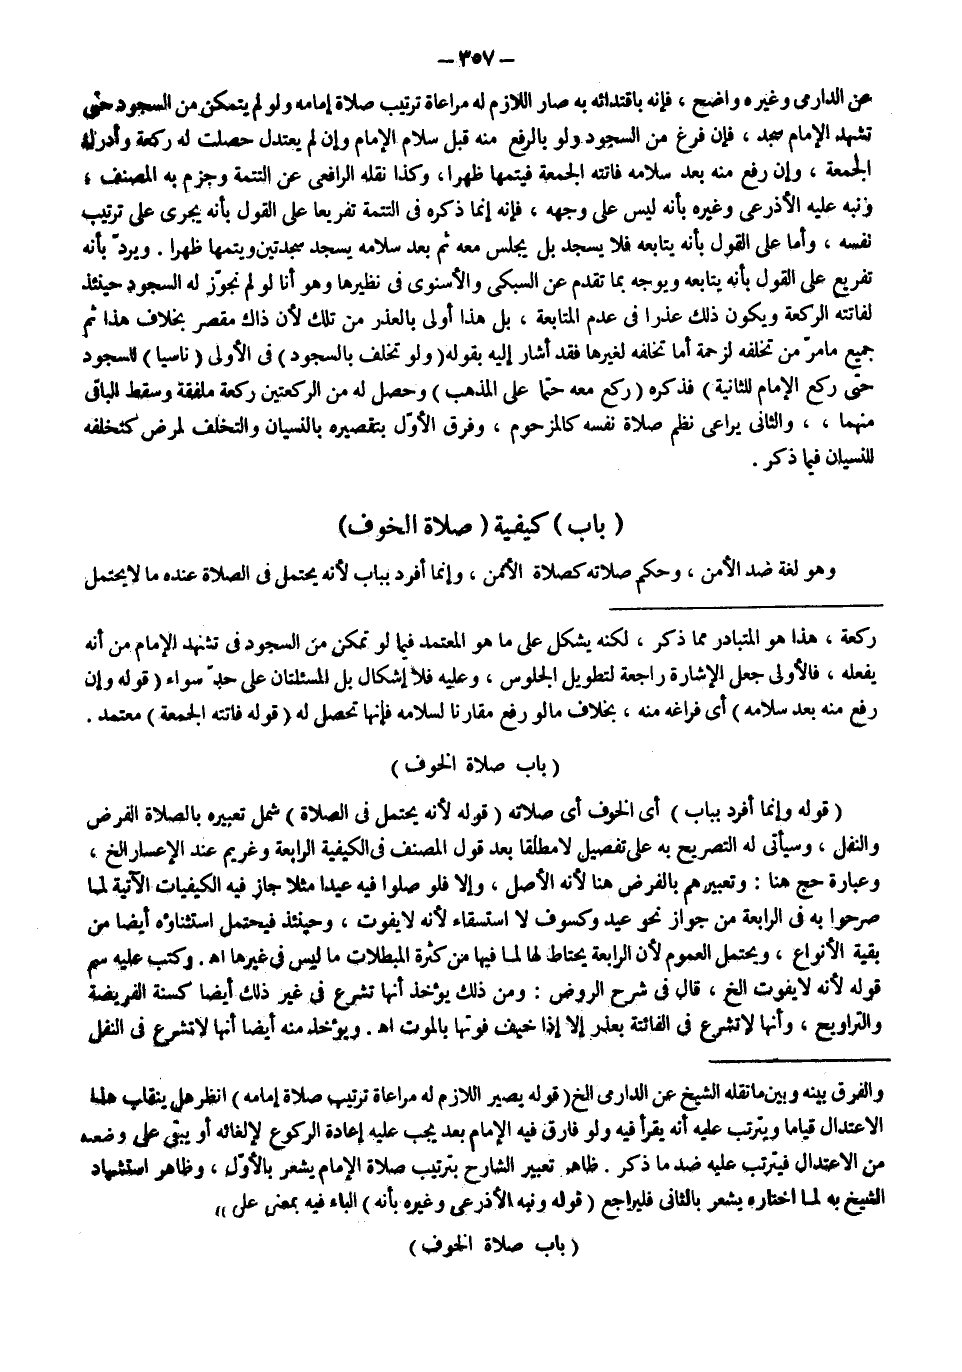 — ٣٥٧ —
عن الدارمى وغيره واضح ، فإنه باقتدائه به صار اللازم له مراعاة ترتيب صلاة إمامه ولو لم يتمكن من السجود حتى
تشهد الإمام سجد ، فإن فرغ من السجود ولو بالرفع منه قبل سلام الإمام وإن لم يعتدل حصلت له ركعة وأدرك
الجمعة ، وإن رفع منه بعد سلامه فاتته الجمعة فيتمها ظهرا ، وكذا نقله الرافعى عن التتمة وجزم به المصنف ،
ونبه عليه الأذرعى وغيره بأنه ليس على وجهه ، فإنه إنما ذكره فى التتمة تفريعا على القول بأنه يجرى على ترتيب
نفسه ، وأما على القول بأنه يتابعه فلا يسجد بل يجلس معه ثم بعد سلامه يسجد سجدتين ويتمها ظهرا . ويردّ بأنه
تفريع على القول بأنه يتابعه ويوجه بما تقدم عن السبكى والأسنوى فى نظيرها وهو أنا لو لم نجوّز له السجود حينئذ
لفاتته الركعة ويكون ذلك عذرا فى عدم المتابعة ، بل هذا أولى بالعذر من تلك لأن ذاك مقصر بخلاف هذا ثم
جميع مامرّ من تخلفه لزحمة أما تخلفه لغيرها فقد أشار إليه بقوله ( ولو تخلف بالسجود ) فى الأولى ( ناسيا ) للسجود
حتى ركع الإمام للثانية ) فذكره ( ركع معه حتما على المذهب ) وحصل له من الركعتين ركعة ملفقة وسقط الباقى
منهما ، ، والثانى يراعى نظم صلاة نفسه كالمزحوم ، وفرق الأوّل بتقصيره بالنسيان والتخلف لمرض كتخلفه
للنسيان فيما ذكر .
( باب ) كيفية ( صلاة الخوف )
وهو لغة ضد الأمن ، وحكم صلاته كصلاة الأمن ، وإنما أفرد بباب لأنه يحتمل فى الصلاة عنده ما لا يحتمل
ركعة ، هذا هو المتبادر مما ذكر ، لكنه يشكل على ما هو المعتمد فيما لو تمكن من السجود فى تشهد الإمام من أنه
يفعله ، فالأولى جعل الإشارة راجعة لتطويل الجلوس ، وعليه فلا إشكال بل المسئلتان على حدّ سواء ( قوله وإن
رفع منه بعد سلامه ) أى فراغه منه ، بخلاف مالو رفع مقارنا لسلامه فإنها تحصل له ( قوله فاتته الجمعة ) معتمد .
( باب صلاة الخوف )
( قوله وإنما أفرد بباب ) أى الخوف أى صلاته ( قوله لأنه يحتمل فى الصلاة ) شمل تعبيره بالصلاة الفرض
والنفل ، وسيأتى له التصريح به على تفصيل لا مطلقا بعد قول المصنف فى الكيفية الرابعة وغريم عند الإعسار الخ ،
وعبارة حج هنا : وتعبيرهم بالفرض هنا لأنه الأصل ، وإلا فلو صلوا فيه عيدا مثلا جاز فيه الكيفيات الآتية لما
صرحوا به فى الرابعة من جواز نحو عيد وكسوف لا استسقاء لأنه لا يفوت ، وحينئذ فيحتمل استثناؤه أيضا من
بقية الأنواع ، ويحتمل العموم لأن الرابعة يحتاط لها لما فيها من كثرة المبطلات ما ليس فى غيرها اه . وكتب عليه سم
قوله لأنه لايفوت الخ ، قال فى شرح الروض : ومن ذلك يؤخذ أنها تشرع فى غير ذلك أيضا كسنة الفريضة
والتراويح ، وأنها لاتشرع فى الفائتة بعذر إلا إذا خيف فوتها بالموت اه . ويؤخذ منه أيضا أنها لاتشرع فى النفل
والفرق بينه وبين مانقله الشيخ عن الدارمى الخ ( قوله يصير اللازم له مراعاة ترتيب صلاة إمامه ) انظر هل ينقلب هذا
الاعتدال قياما ويترتب عليه أنه يقرأ فيه ولو فارق فيه الإمام بعد يجب عليه إعادة الركوع لإلغائه أو يبقى على وضعه
من الاعتدال فيترتب عليه ضد ما ذكر . ظاهر تعبير الشارح بترتيب صلاة الإمام يشعر بالأوّل ، وظاهر استشهاد
الشيخ به لما اختاره يشعر بالثانى فليراجع ( قوله ونبه الأذرعى وغيره بأنه ) الباء فيه بمعنى على ،،
( باب صلاة الخوف )